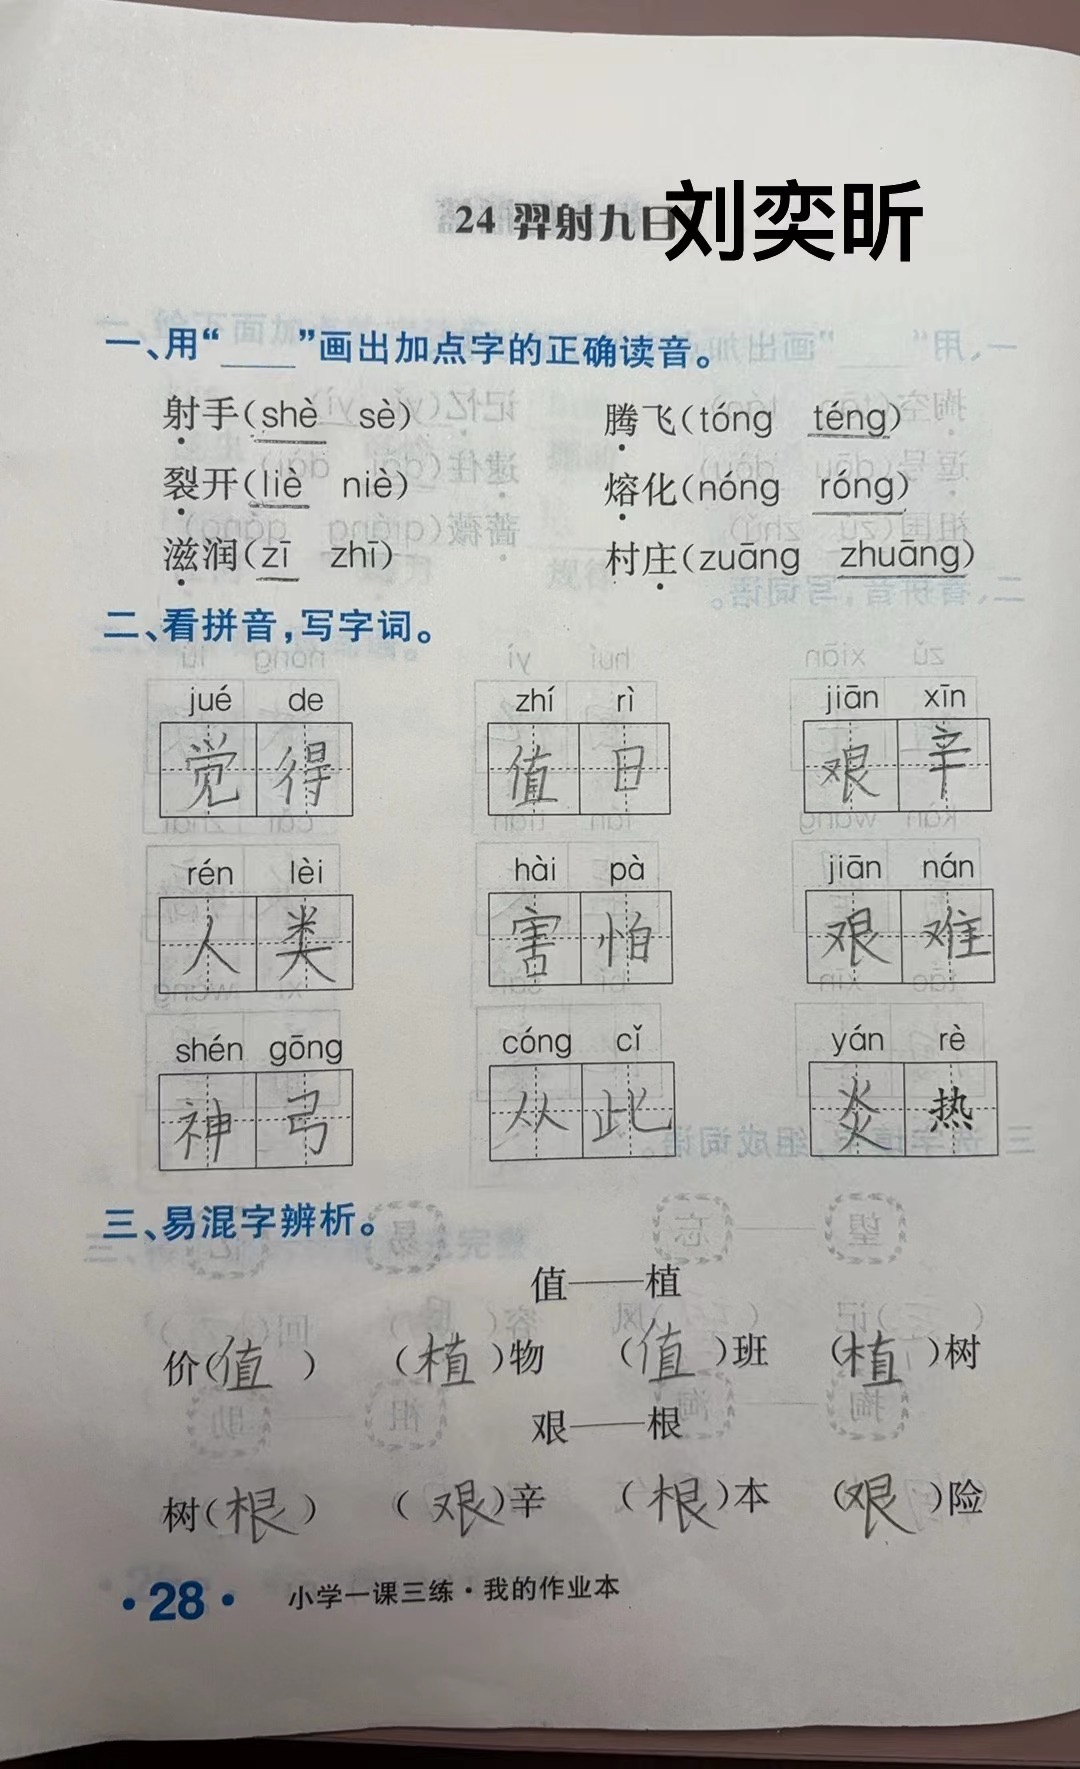 24 羿射九日 刘奕昕
一、用“____”画出加点字的正确读音。
射手(shè sè) 腾飞(tóng téng)
裂开(liè niè) 熔化(nóng róng)
滋润(zī zhī) 村庄(zuāng zhuāng)
二、看拼音,写字词。
jué de zhí rì jiān xīn
觉得 值日 艰辛
rén lèi hài pà jiān nán
人类 害怕 艰难
shén gōng cóng cǐ yán rè
神弓 从此 炎热
三、易混字辨析。
值——植
价(值) (植)物 (值)班 (植)树
艰——根
树(根) (艰)辛 (根)本 (艰)险
·28· 小学一课三练·我的作业本